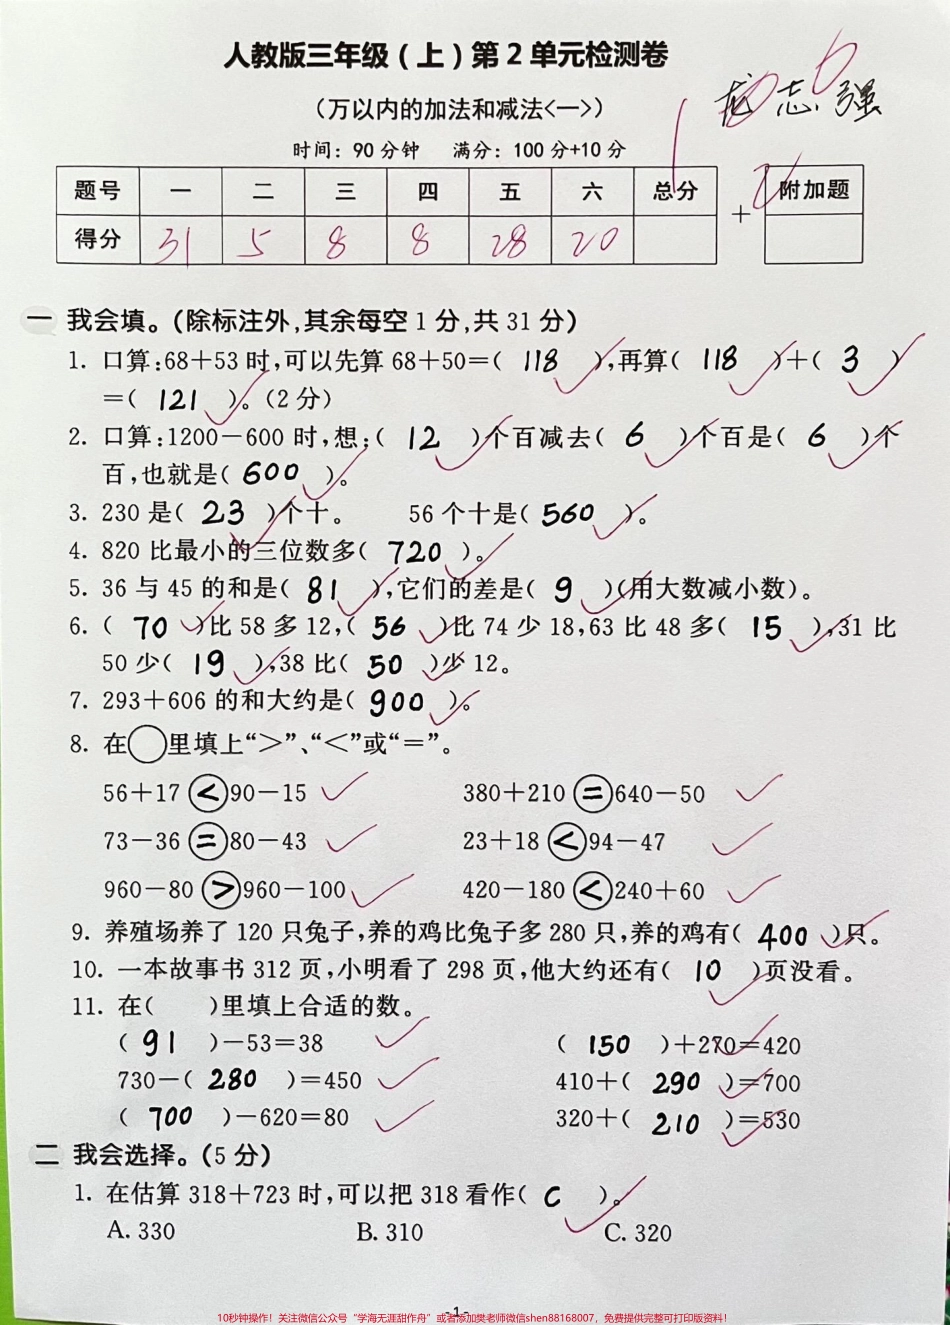 人教版三年级（上）第2单元检测卷
（万以内的加法和减法<一>）
龙志强
100
时间：90分钟 满分：100分+10分
题号 一 二 三 四 五 六 总分 + 附加题
得分 31 5 8 8 28 20
一 我会填。(除标注外,其余每空1分,共31分)
1. 口算:68+53时,可以先算68+50=( 118 ),再算( 118 )+( 3 )
=( 121 )。(2分)
2. 口算:1200-600时,想:( 12 )个百减去( 6 )个百是( 6 )个
百,也就是( 600 )。
3. 230是( 23 )个十。 56个十是( 560 )。
4. 820比最小的三位数多( 720 )。
5. 36与45的和是( 81 ),它们的差是( 9 )(用大数减小数)。
6. ( 70 )比58多12,( 56 )比74少18,63比48多( 15 ),31比
50少( 19 ),38比( 50 )少12。
7. 293+606的和大约是( 900 )。
8. 在○里填上“>”、“<”或“=”。
56+17 < 90-15 380+210 = 640-50
73-36 = 80-43 23+18 < 94-47
960-80 > 960-100 420-180 < 240+60
9. 养殖场养了120只兔子,养的鸡比兔子多280只,养的鸡有( 400 )只。
10. 一本故事书312页,小明看了298页,他大约还有( 10 )页没看。
11. 在( )里填上合适的数。
( 91 )-53=38 ( 150 )+270=420
730-( 280 )=450 410+( 290 )=700
( 700 )-620=80 320+( 210 )=530
二 我会选择。(5分)
1. 在估算318+723时,可以把318看作( C )。
A. 330 B. 310 C. 320
-1-
10秒钟操作！关注微信公众号“学海无涯甜作舟”或者添加樊老师微信shen88168007，免费提供完整可打印版资料！